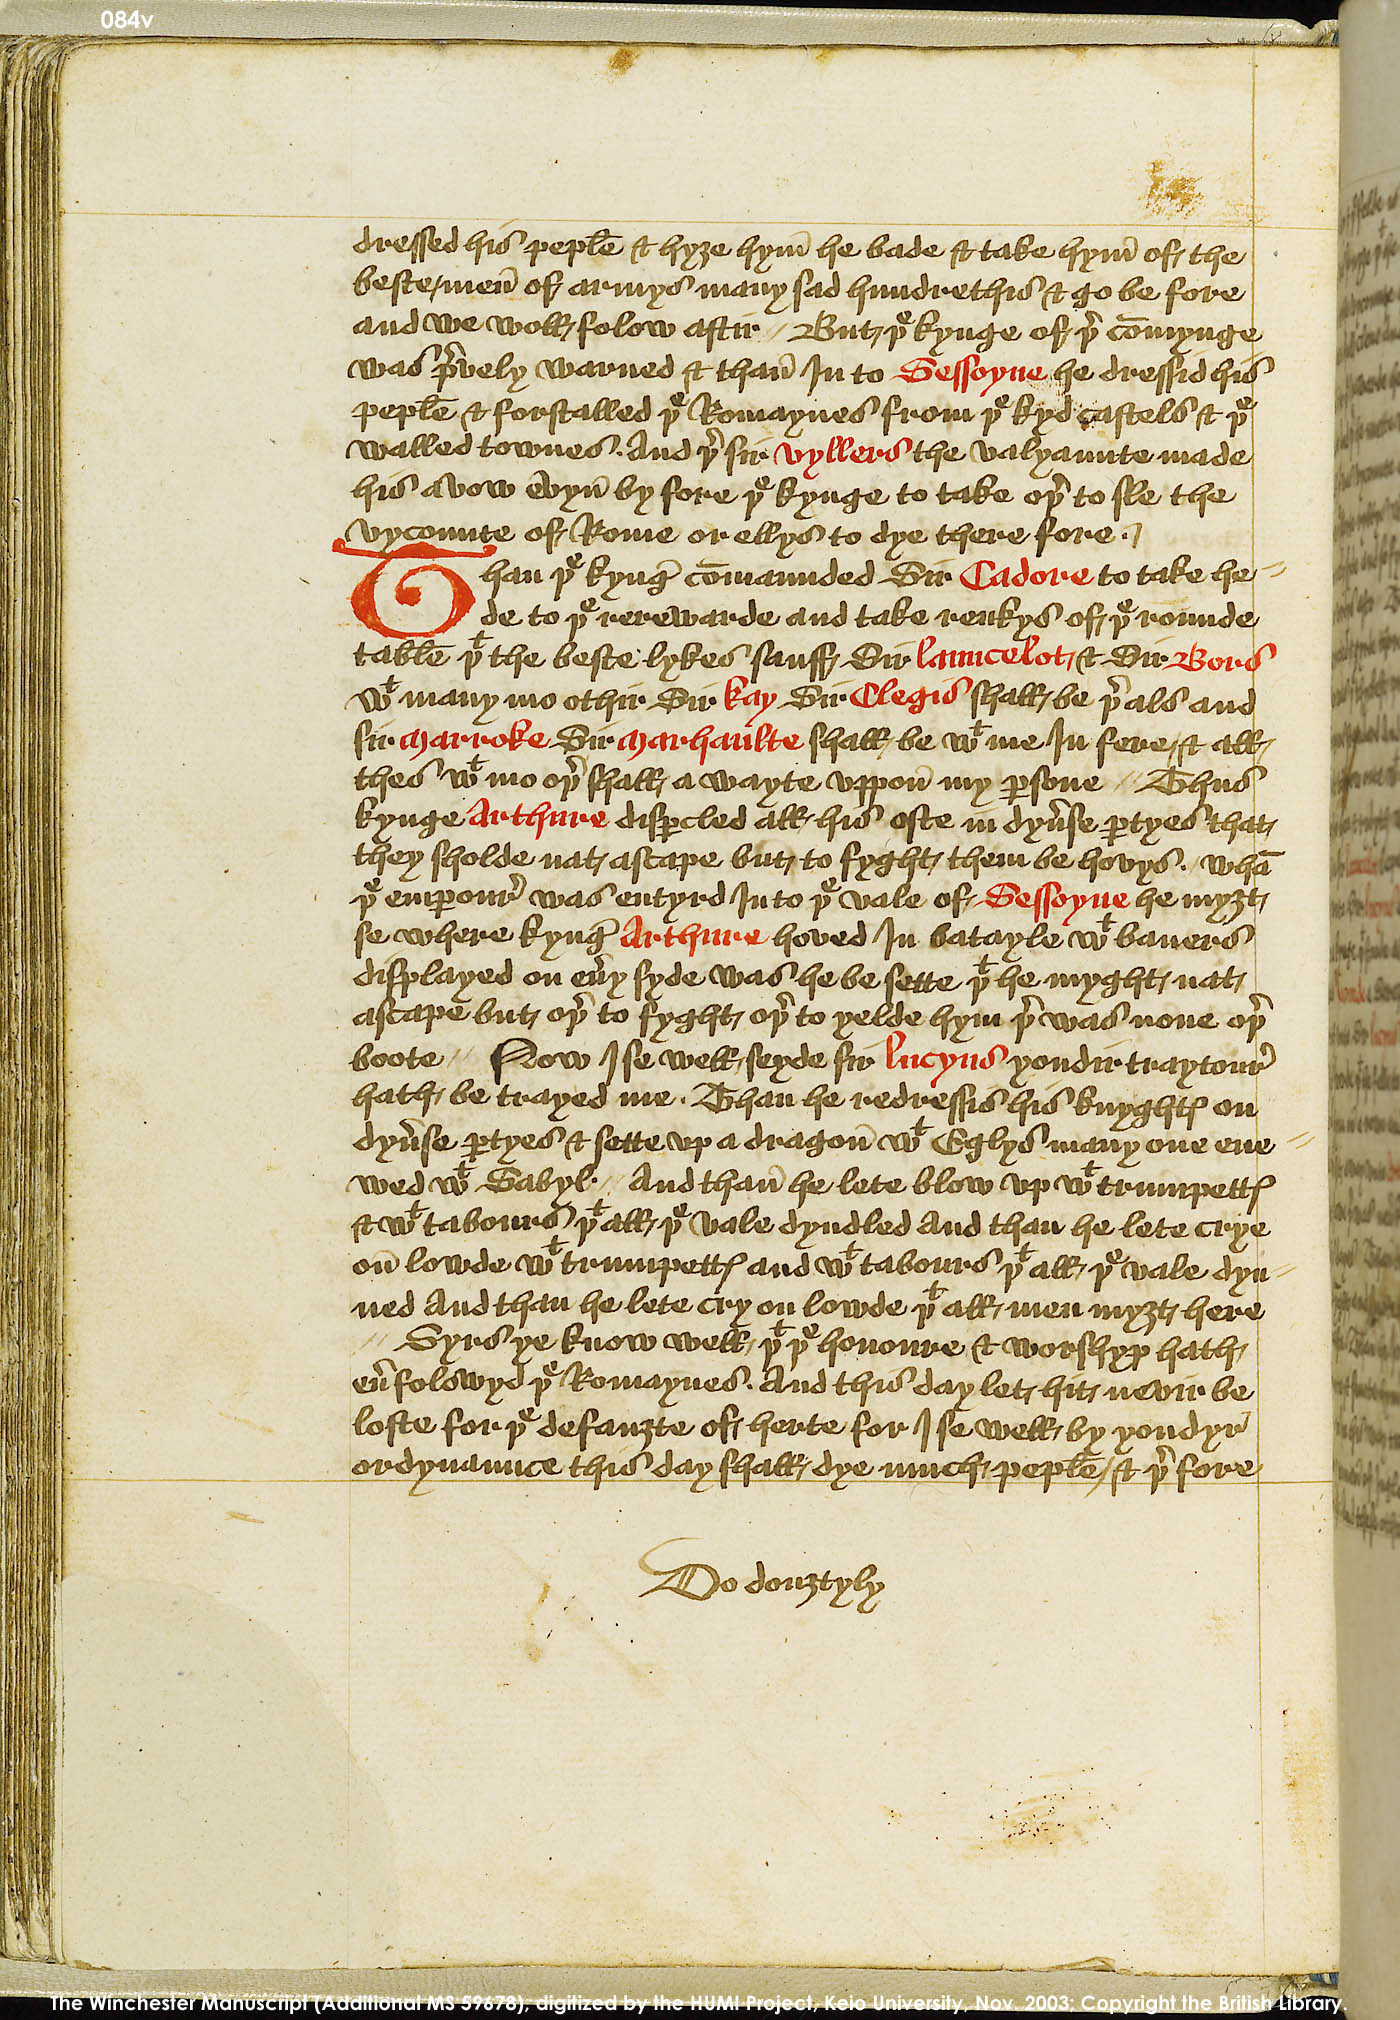 084v
dressed his peple̅ & hyȝe hym̅ he bade & take hym̅ of the
beste men̅ of armys many sad hundrethis & go be fore
and we woll folow aftir // But þᵉ kynge of þʳ co̅mynge
was pʳvely warned & than̅ In to Sessoyne he dressid his
peple̅ & forstalled þᵉ Romaynes from þᵉ kyd castels & þᵉ
walled townes. And þʳ sir vyllers the valyaunte made
his avow evyn̅ by fore þᵉ kynge to take oþʳ to sle the
vycounte of Rome or ellys to dye there fore.
Than þᵉ kyngʳ co̅maunded Sir Cadore to take he=
de to þᵉ rerewarde and take renkys of þᵉ rounde
table̅ þᵗ the beste lykes sauff Sir launcelot & Sir Bors
wᵗ many mo othir Sir kay Sir Clegis shall be þʳ als and
sir Marroke Sir Marhaulte shall be wᵗ me In fere & all
thes wᵗ mo oþʳ shall a wayte vppon̅ my ꝑsone // Thus
kynge Arthure disꝑcled all his oste in dyu̕se ꝑtyes that
they sholde nat ascape but to fyght them be hovys. // wha̅
þᵉ emꝑourʳ was entyrd In to þᵉ vale of Sessoyne he myȝt
se where kyngʳ Arthure hoved In batayle wᵗ baners
displayed on eu̕y syde was he be sette þᵗ he myght nat
ascape but oþʳ to fyght oþʳ to yelde hym þʳ was none oþʳ
boote // Now I se well seyde sir lucyus yondir traytourʳ
hath be trayed me. Than he redressis his knyghtꝭ on
dyu̕se ꝑtyes & sette vp a dragon̅ wᵗ Eglys many one ene=
wed wᵗ Sabyl // And than̅ he lete blow vp wᵗ trumpettꝭ
& wᵗ tabours þᵗ all þᵉ vale dyndled And than he lete crye
on̅ lowde wᵗ trumpettꝭ and wᵗ tabours þᵗ all þᵉ vale dyn=
ned And than he lete cry on lowde þᵗ all men myȝt here
// Syrs ye know well þᵗ þᵉ honoure & worshyp hath
eu̕ folowyd þᵉ Romaynes. And this day let hit nevir be
loste for þᵉ defauȝte of herte for I se well by yondyr
ordynaunce this day shall dye much peple̅ & þʳ fore
Do douȝtyly
The Winchester Manuscript (Additional MS 59678), digitized by the HUMI Project, Keio University, Nov. 2003; Copyright the British Library.